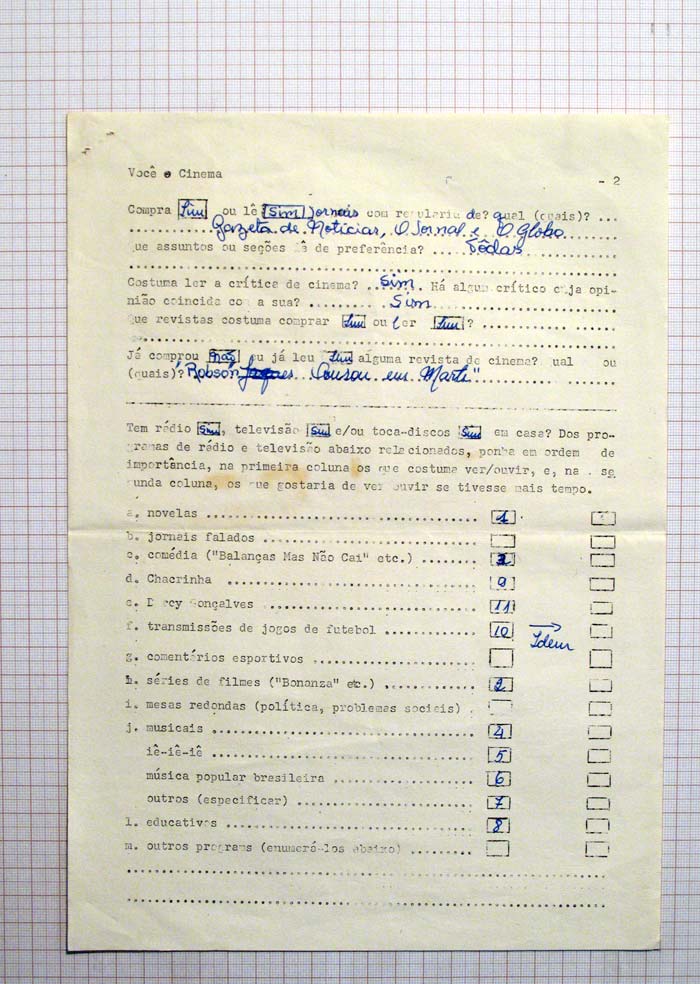 Você e Cinema - 2
Compra Sim ou lê Sim jornais com regularidade? qual (quais)? ...
Gazeta de Notícias, O Jornal e O Globo
que assuntos ou seções lê de preferência? .... Tôdas
Costuma ler a crítica de cinema? ..Sim. Há algum crítico cuja opi-
nião coincide com a sua? .......... Sim
que revistas costuma comprar Sim ou ler Sim ?
Já comprou Não ou já leu Sim alguma revista de cinema? qual ou
(quais)? Robson em Marte"
Tem rádio Sim, televisão Sim e/ou toca-discos Sim em casa? Dos pro-
gramas de rádio e televisão abaixo relacionados, ponha em ordem de
importância, na primeira coluna os que costuma ver/ouvir, e, na . se
gunda coluna, os que gostaria de ver ouvir se tivesse mais tempo.
a. novelas 1
b. jornais falados
c. comédia ("Balanças Mas Não Cai" etc.)
d. Chacrinha 9
e. Dercy Gonçalves 11
f. transmissões de jogos de futebol 10 → Idem
g. comentários esportivos
h. séries de filmes ("Bonanza" etc.) 2
i. mesas redondas (política, problemas sociais) .
j. musicais 4
iê-iê-iê 5
música popular brasileira 6
outros (especificar) 7
l. educativos 8
m. outros programs (enumerá-los abaixo)